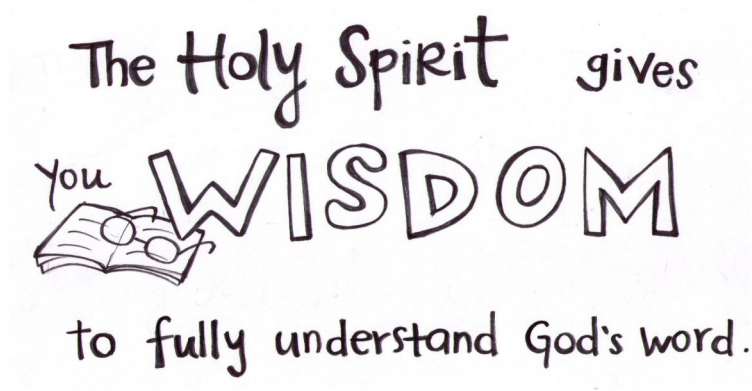 The Holy Spirit gives
you WISDOM
to fully understand God's word.